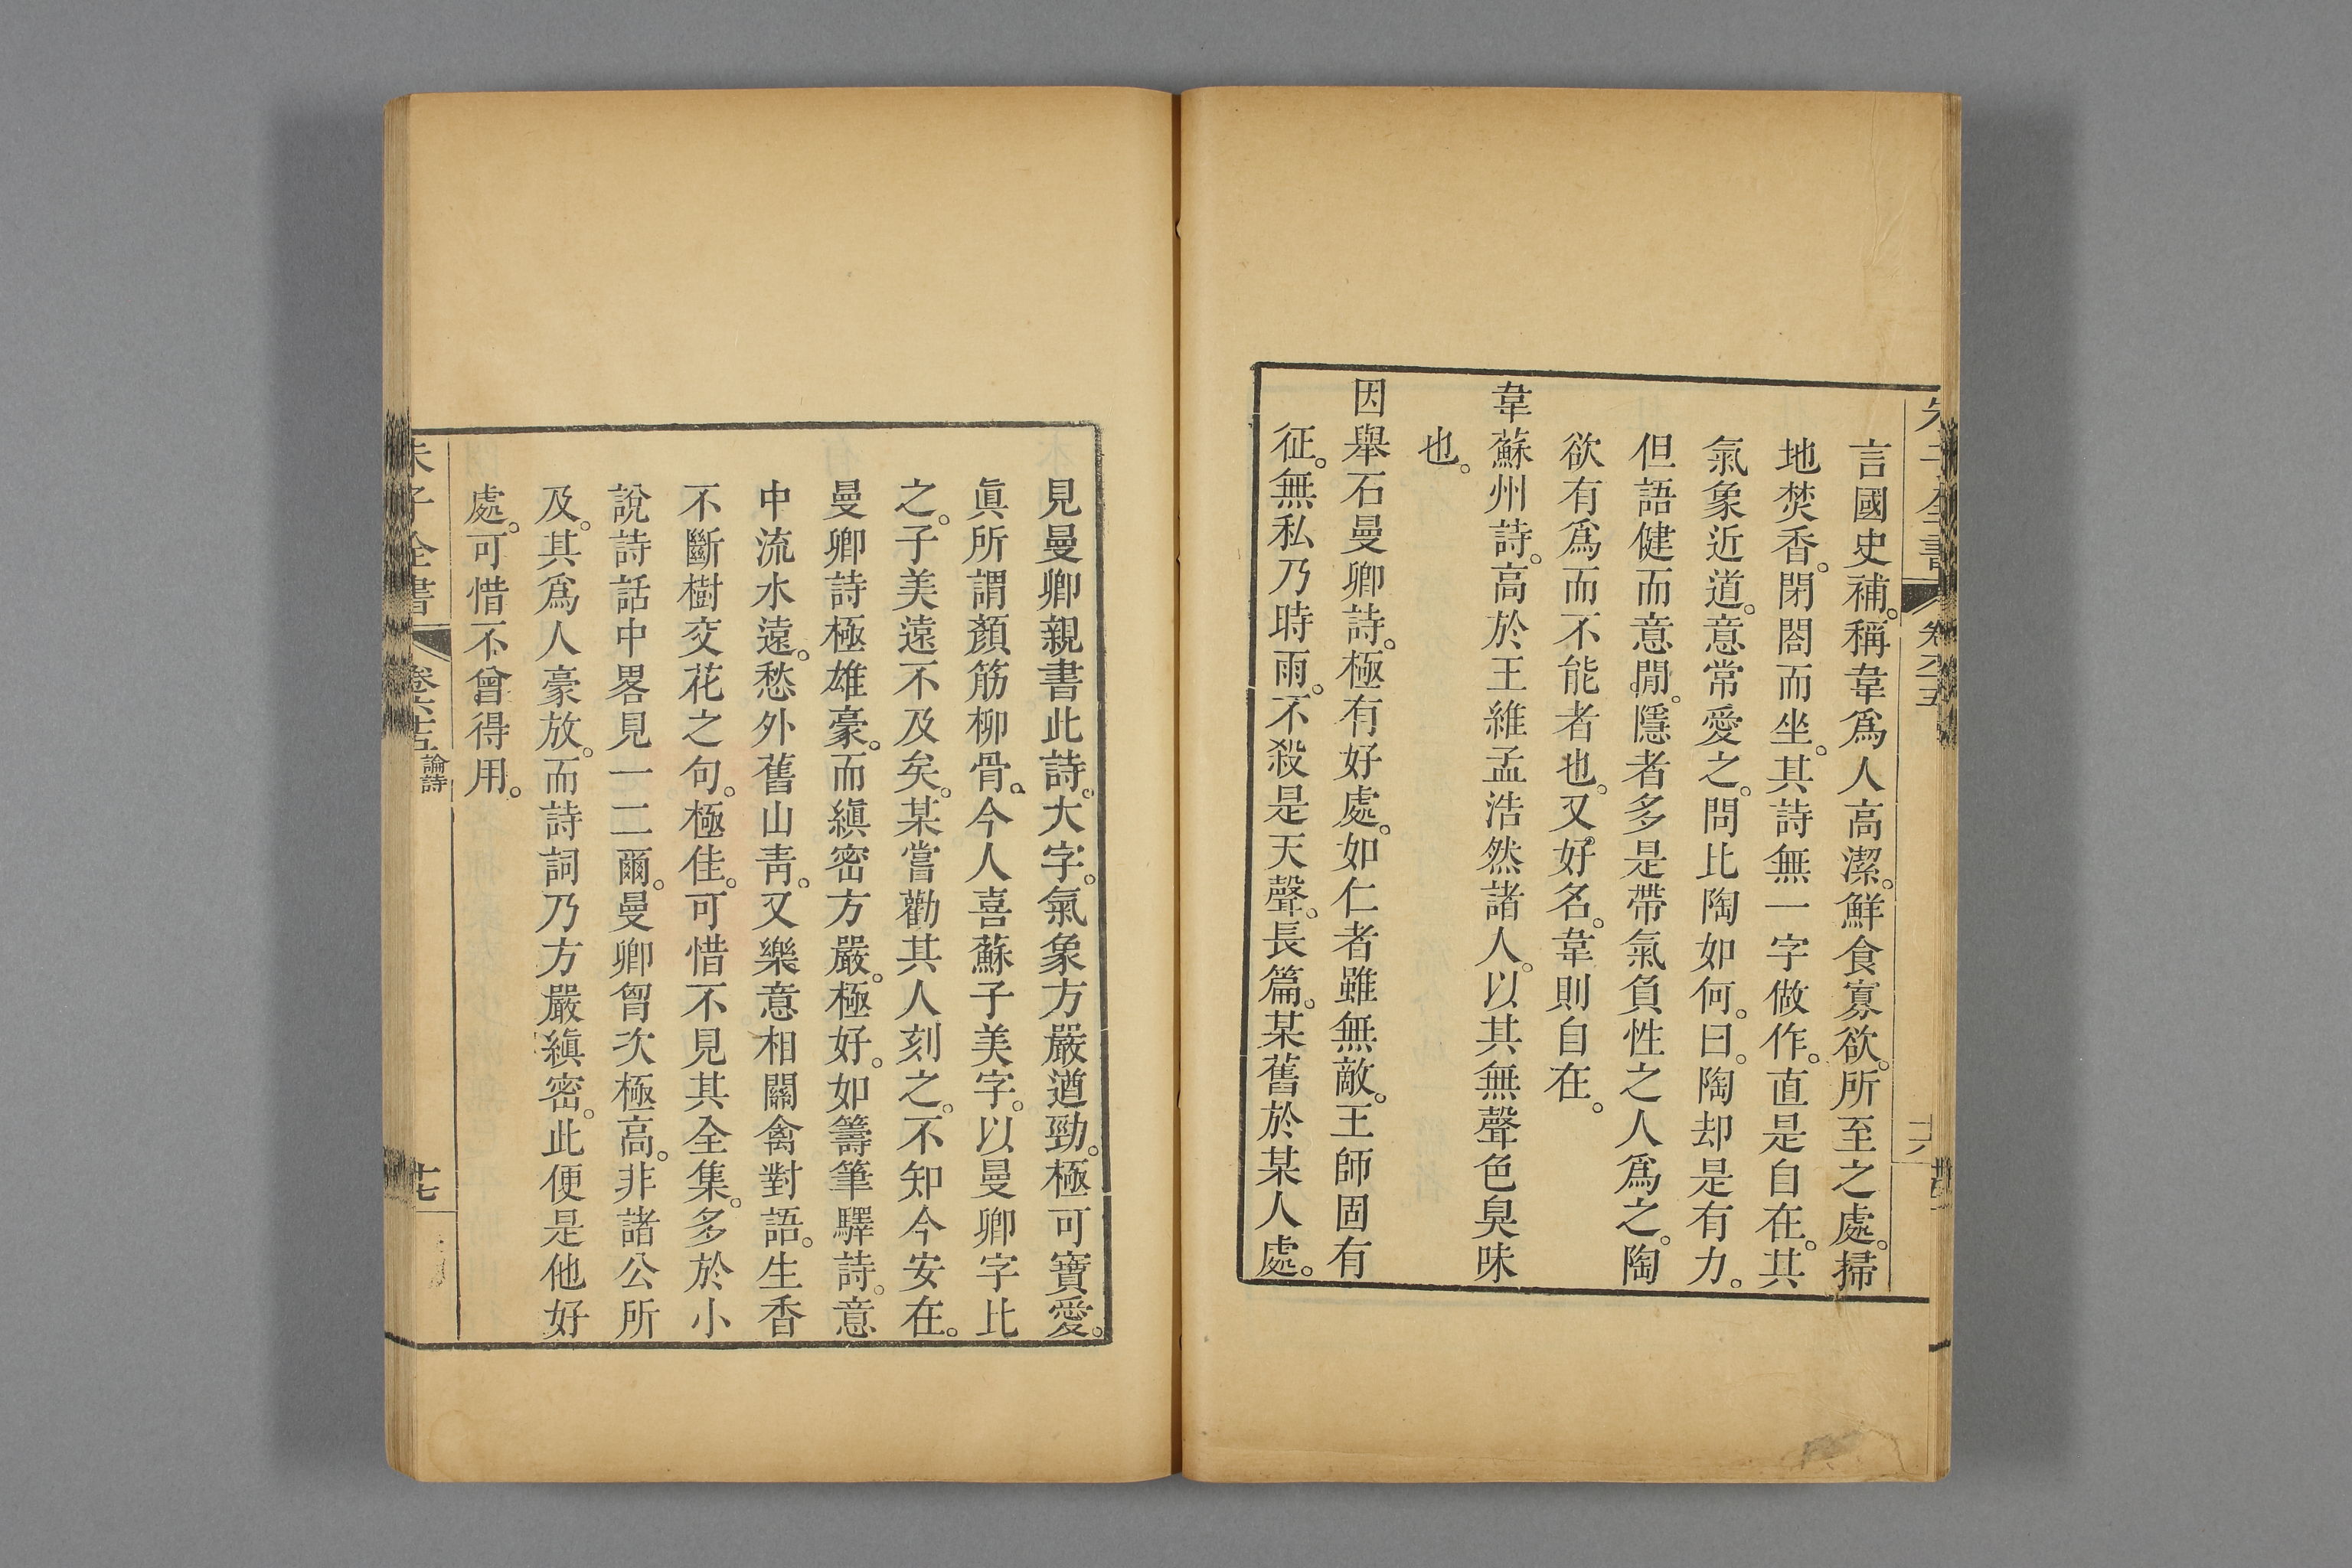 言國史補。稱韋爲人高潔。鮮食寡欲。所至之處。掃
地焚香。閉閤而坐。其詩無一字做作。直是自在。其
氣象近道。意常愛之。問比陶如何。曰。陶却是有力。
但語健而意閒。隱者多是帶氣負性之人爲之。陶
欲有爲而不能者也。又好名。韋則自在。
韋蘇州詩。高於王維孟浩然諸人。以其無聲色臭味
也。
因舉石曼卿詩。極有好處。如仁者雖無敵。王師固有
征。無私乃時雨。不殺是天聲。長篇。某舊於某人處。
見曼卿親書此詩。大字。氣象方嚴遒勁。極可寶愛。
眞所謂顏筋柳骨。今人喜蘇子美字。以曼卿字比
之。子美遠不及矣。某嘗勸其人刻之。不知今安在。
曼卿詩極雄豪。而縝密方嚴。極好。如籌筆驛詩。意
中流水遠。愁外舊山靑。又樂意相關禽對語。生香
不斷樹交花之句。極佳。可惜不見其全集。多於小
說詩話中畧見一二爾。曼卿胷次極高。非諸公所
及。其爲人豪放。而詩詞乃方嚴縝密。此便是他好
處。可惜不曾得用。
朱子全書
卷六十五
論詩
十七